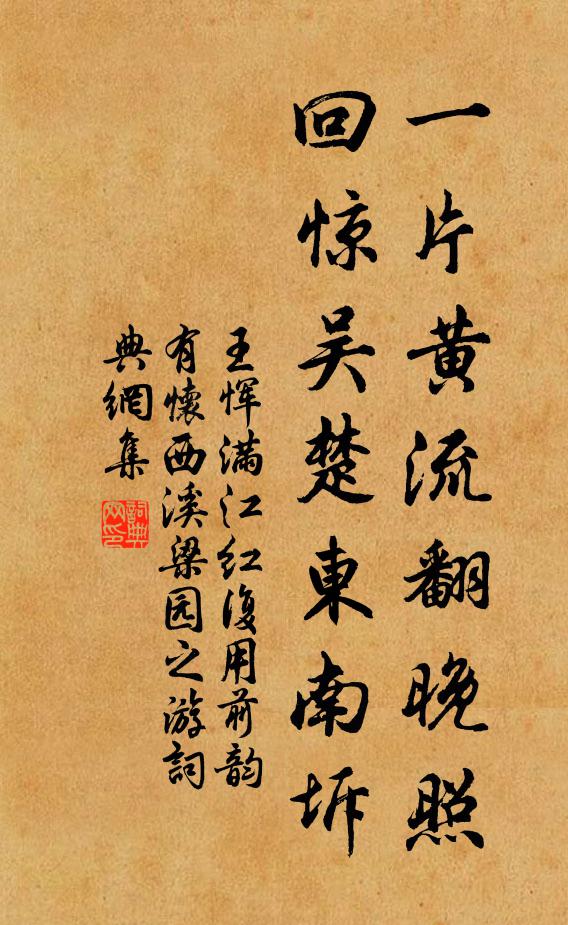 一片黄流翻晚照
回惊吴楚東南坼
王恽满江红復用前韵
有懷西溪梁园之游詞
典網集
詞典网印